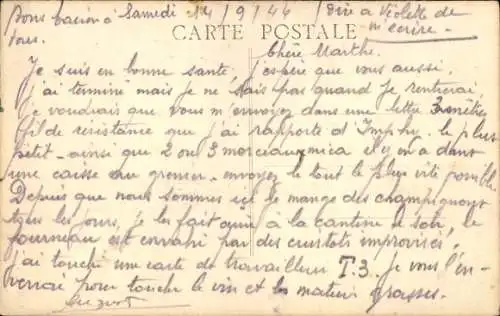 Bons baisers à Samedi 14/9/46 Dire à Violette de
tous. CARTE POSTALE m'écrire.
Chère Marthe.
Je suis en bonne santé, j'espère que vous aussi.
j'ai terminé mais je ne sais pas quand je rentrerai,
je voudrais que vous m'envoyez dans une lettre 3 mètres
fil de résistance que j'ai rapporté d'Imphy. le plus
petit - ainsi que 2 ou 3 morceaux mica il y en a dans
une caisse au grenier - envoyez le tout le plus vite possible
Depuis que nous sommes ici je mange des champignons
tous les jours, je les fait cuire à la cantine le soir, le
fourneau est envahi par des cuistots improvisés,
j'ai touché une carte de travailleur T.3. Je vous l'en-
verrai pour toucher le vin et les matières grasses.